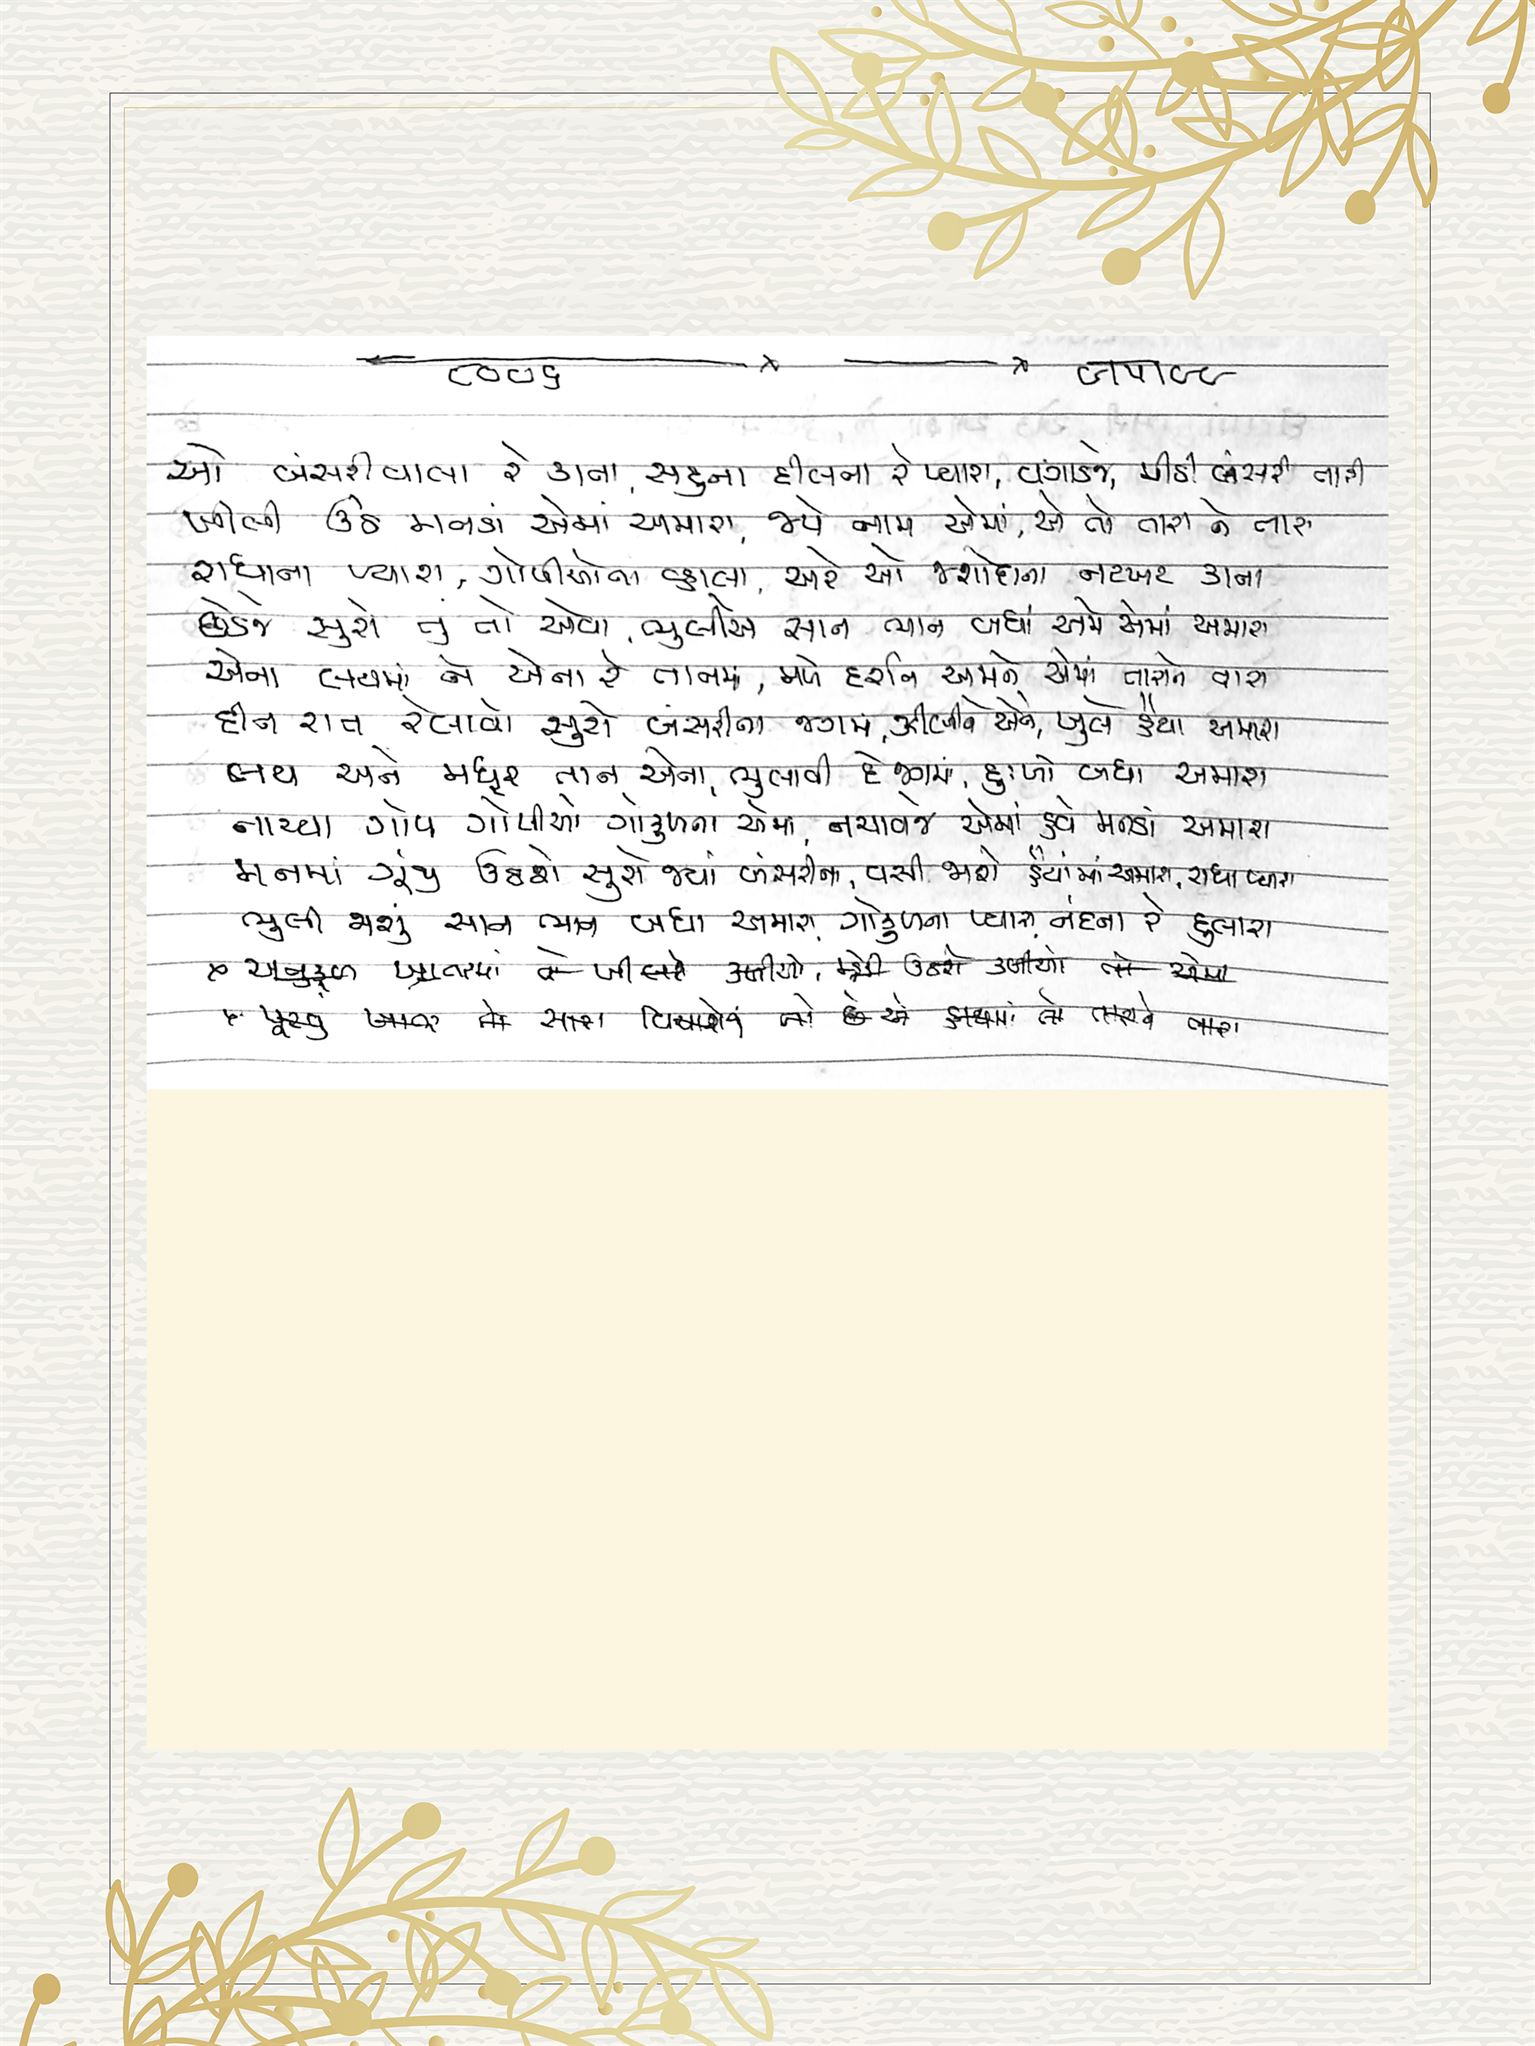 ૮૦૦૬ ૭।૫।૯૯
ઓ બંસરીવાલા રે કાના, સહુના દીલના રે પ્યારા, વગાડજે, મીઠી બંસરી તારી
ખીલી ઉઠે મનડાં એમાં અમારા, જપે નામ એમાં, એ તો તારા ને તારા
રાધાના પ્યારા, ગોપીઓના વ્હાલા, અરે ઓ જશોદાના નટખટ કાના
છેડજે સુરો તું તો એવા, ભુલીએ સાન ભાન બધાં અમે એમાં અમારા
એના લયમાં ને એના રે તાનમાં, મળે દર્શન અમને એમાં તારાને તારા
દીન રાત રેલાવો સુરો બંસરીના જગમાં, ઝીલીને એને, ખુલે હૈયા અમારા
લય અને મધુર તાન એના, ભુલાવી દે જગમાં, દુઃખો બધા અમારા
નાચ્યા ગોપ ગોપીઓ ગોકુળના એમાં, નચાવજે એમાં હવે મનડાં અમારા
મનમાં ગૂંજી ઉઠશે સુરો જ્યાં બંસરીના, વસી જાશે હૈયાંમાં અમારા, રાધા પ્યારા
ભુલી જાશું સાન ભાન બધા અમારા, ગોકુળના પ્યારા, નંદના રે દુલારા
× અનુકૂળ ઉઠશે કળીયો તો એમાં
× તો સારા તો છે એ હાથમાં તો તારાને તારા